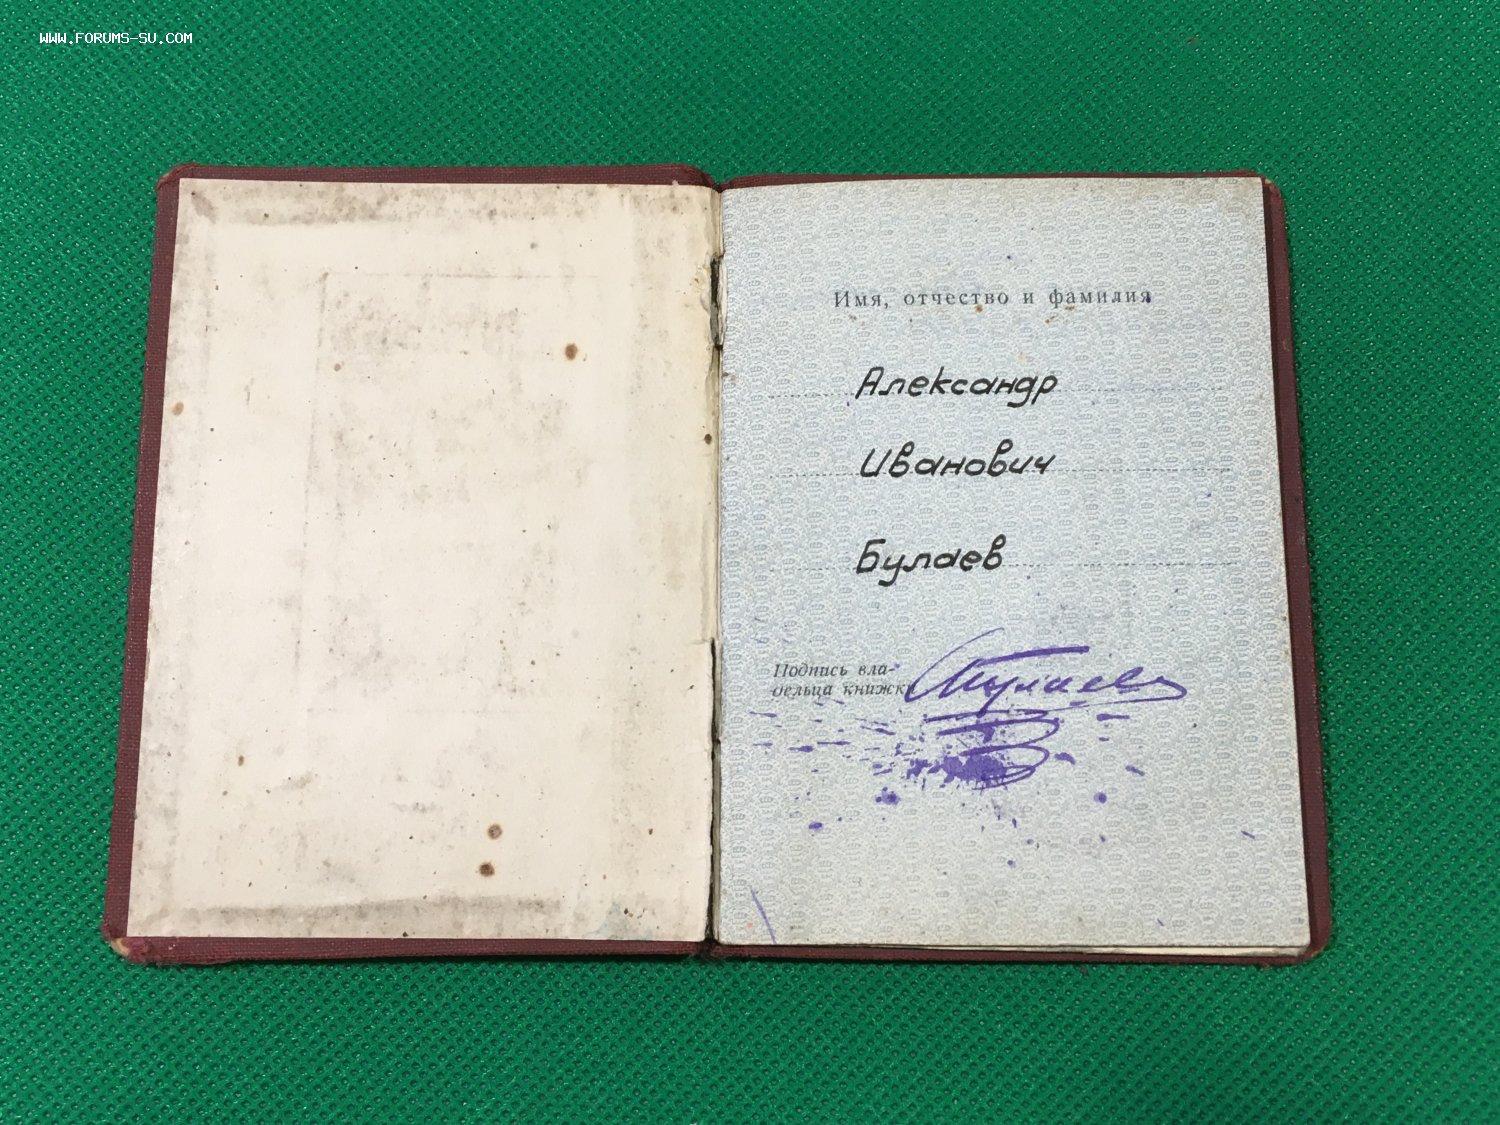 WWW.FORUMS-SU.COM
Имя, отчество и фамилия
Александр
Иванович
Булаев
Подпись вла-
дельца книжк